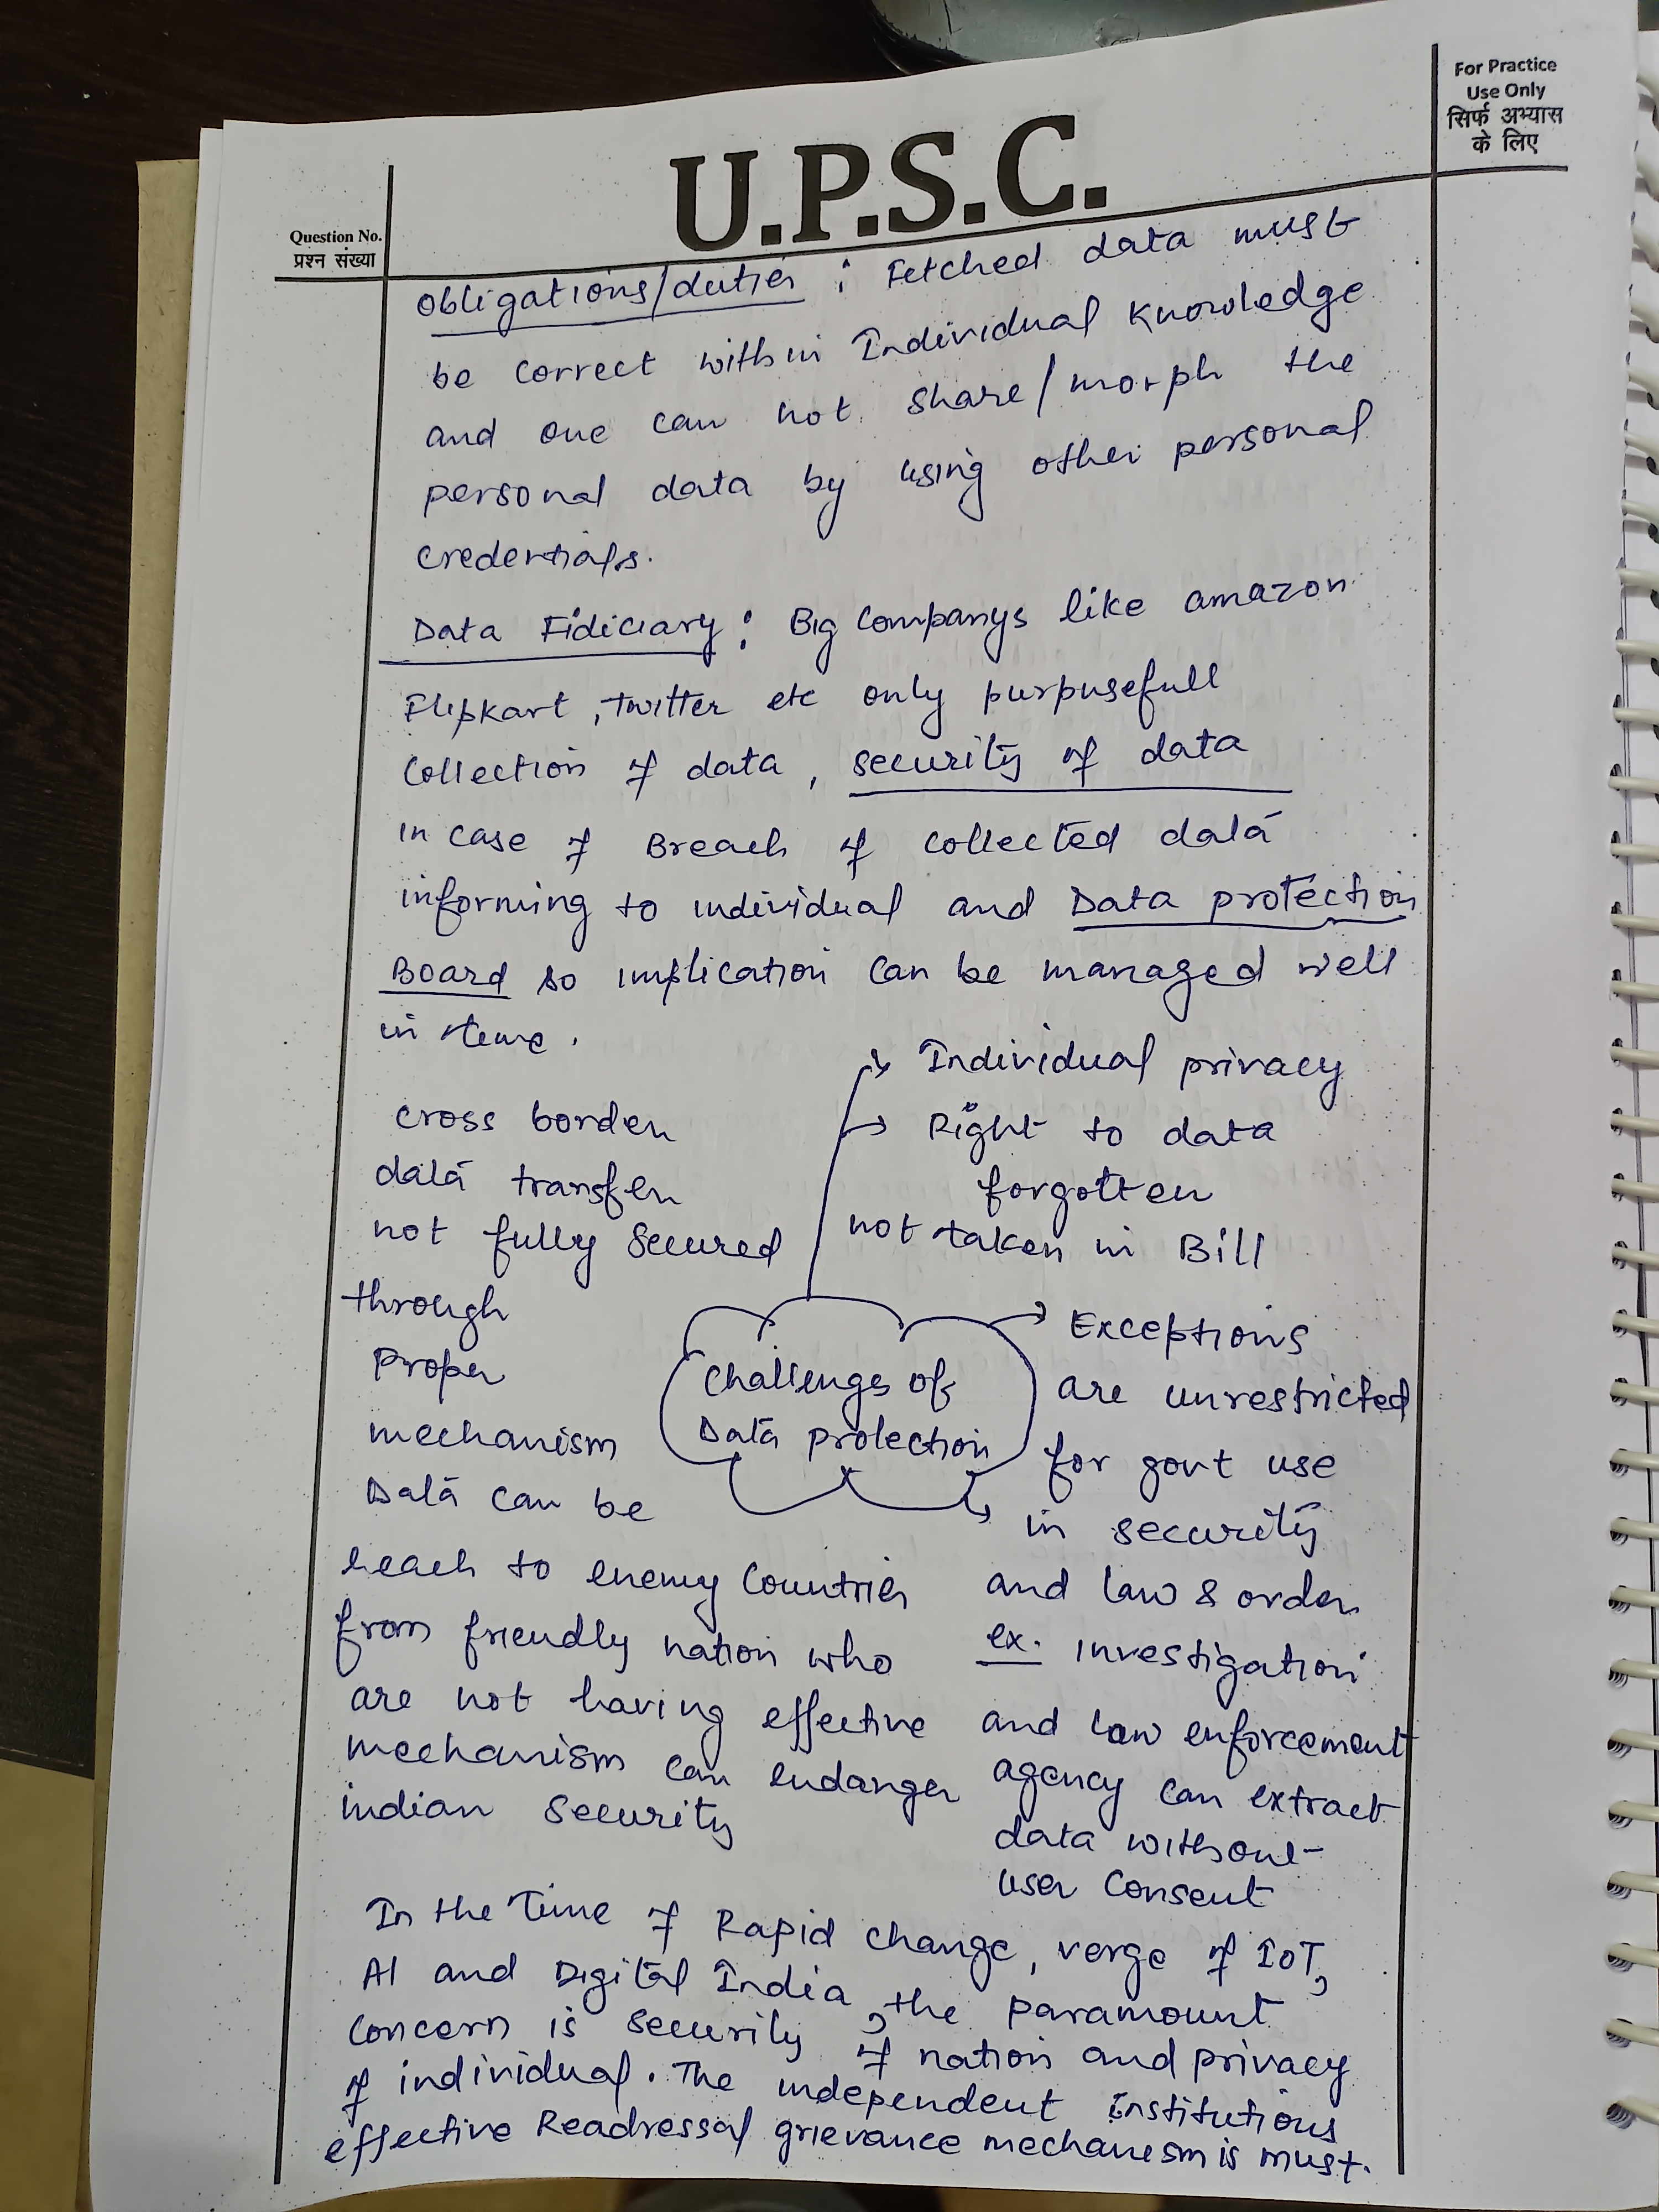 For Practice
Use Only
सिर्फ अभ्यास
के लिए
U.P.S.C.
Question No.
प्रश्न संख्या
Obligations/duties : Fetched data must
be correct within Individual knowledge
and one can not share/morph the
personal data by using other personal
credentials.
Data Fidiciary : Big Companys like amazon
Flipkart, twitter etc only purpusefull
Collection of data, security of data
in case of Breach of collected data
informing to individual and Data protection
Board so implication can be managed well
in time.
cross border
data transfer
not fully secured
through
Proper
mechanism
Data can be
reach to enemy Countries
from friendly nation who
are not having effective
mechanism can endanger
indian security
Individual privacy
Right to data
forgotten
not taken in Bill
Challenges of
Data protection
Exceptions
are unrestricted
for govt use
in security
and law & order
ex. investigation
and law enforcement
agency can extract
data without
user Consent
In the Time of Rapid change, verge of IoT,
AI and Digital India, the paramount
Concern is security of nation and privacy
of individual. The independent institutions
effective Readressal grievance mechanism is must.